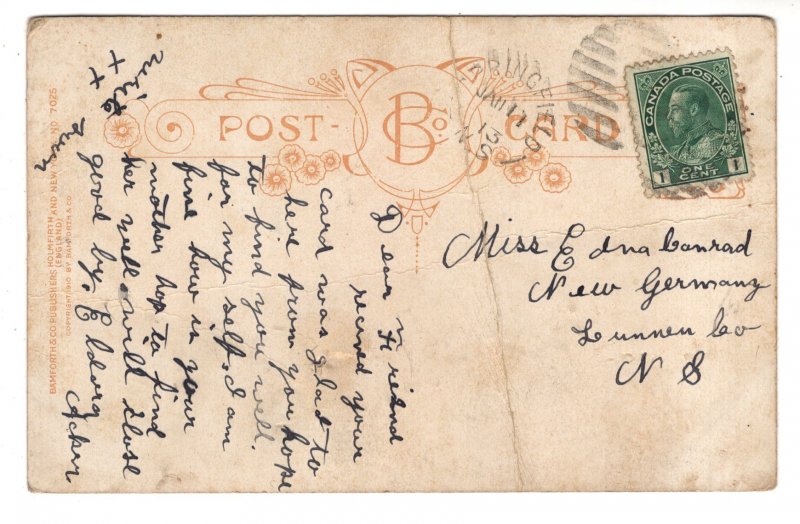 POST-
CARD
B Co
JAN 11
13
N.S.
CANADA POSTAGE
1 ONE CENT 1
Miss Edna Conrad
New Germany
Lunnen Co
N S
Dear Friend
recived your
card was glad to
here from you hope
to find you well.
for my self I am
fine how is your
mother hop to find
her well will close
good by, Eldora
Acker
write
soon
+ +
BAMFORTH & CO PUBLISHERS HOLMFIRTH AND NEW
(ENGLAND)
NO 7025
COPYRIGHT 1910 BY BAMFORTH & CO